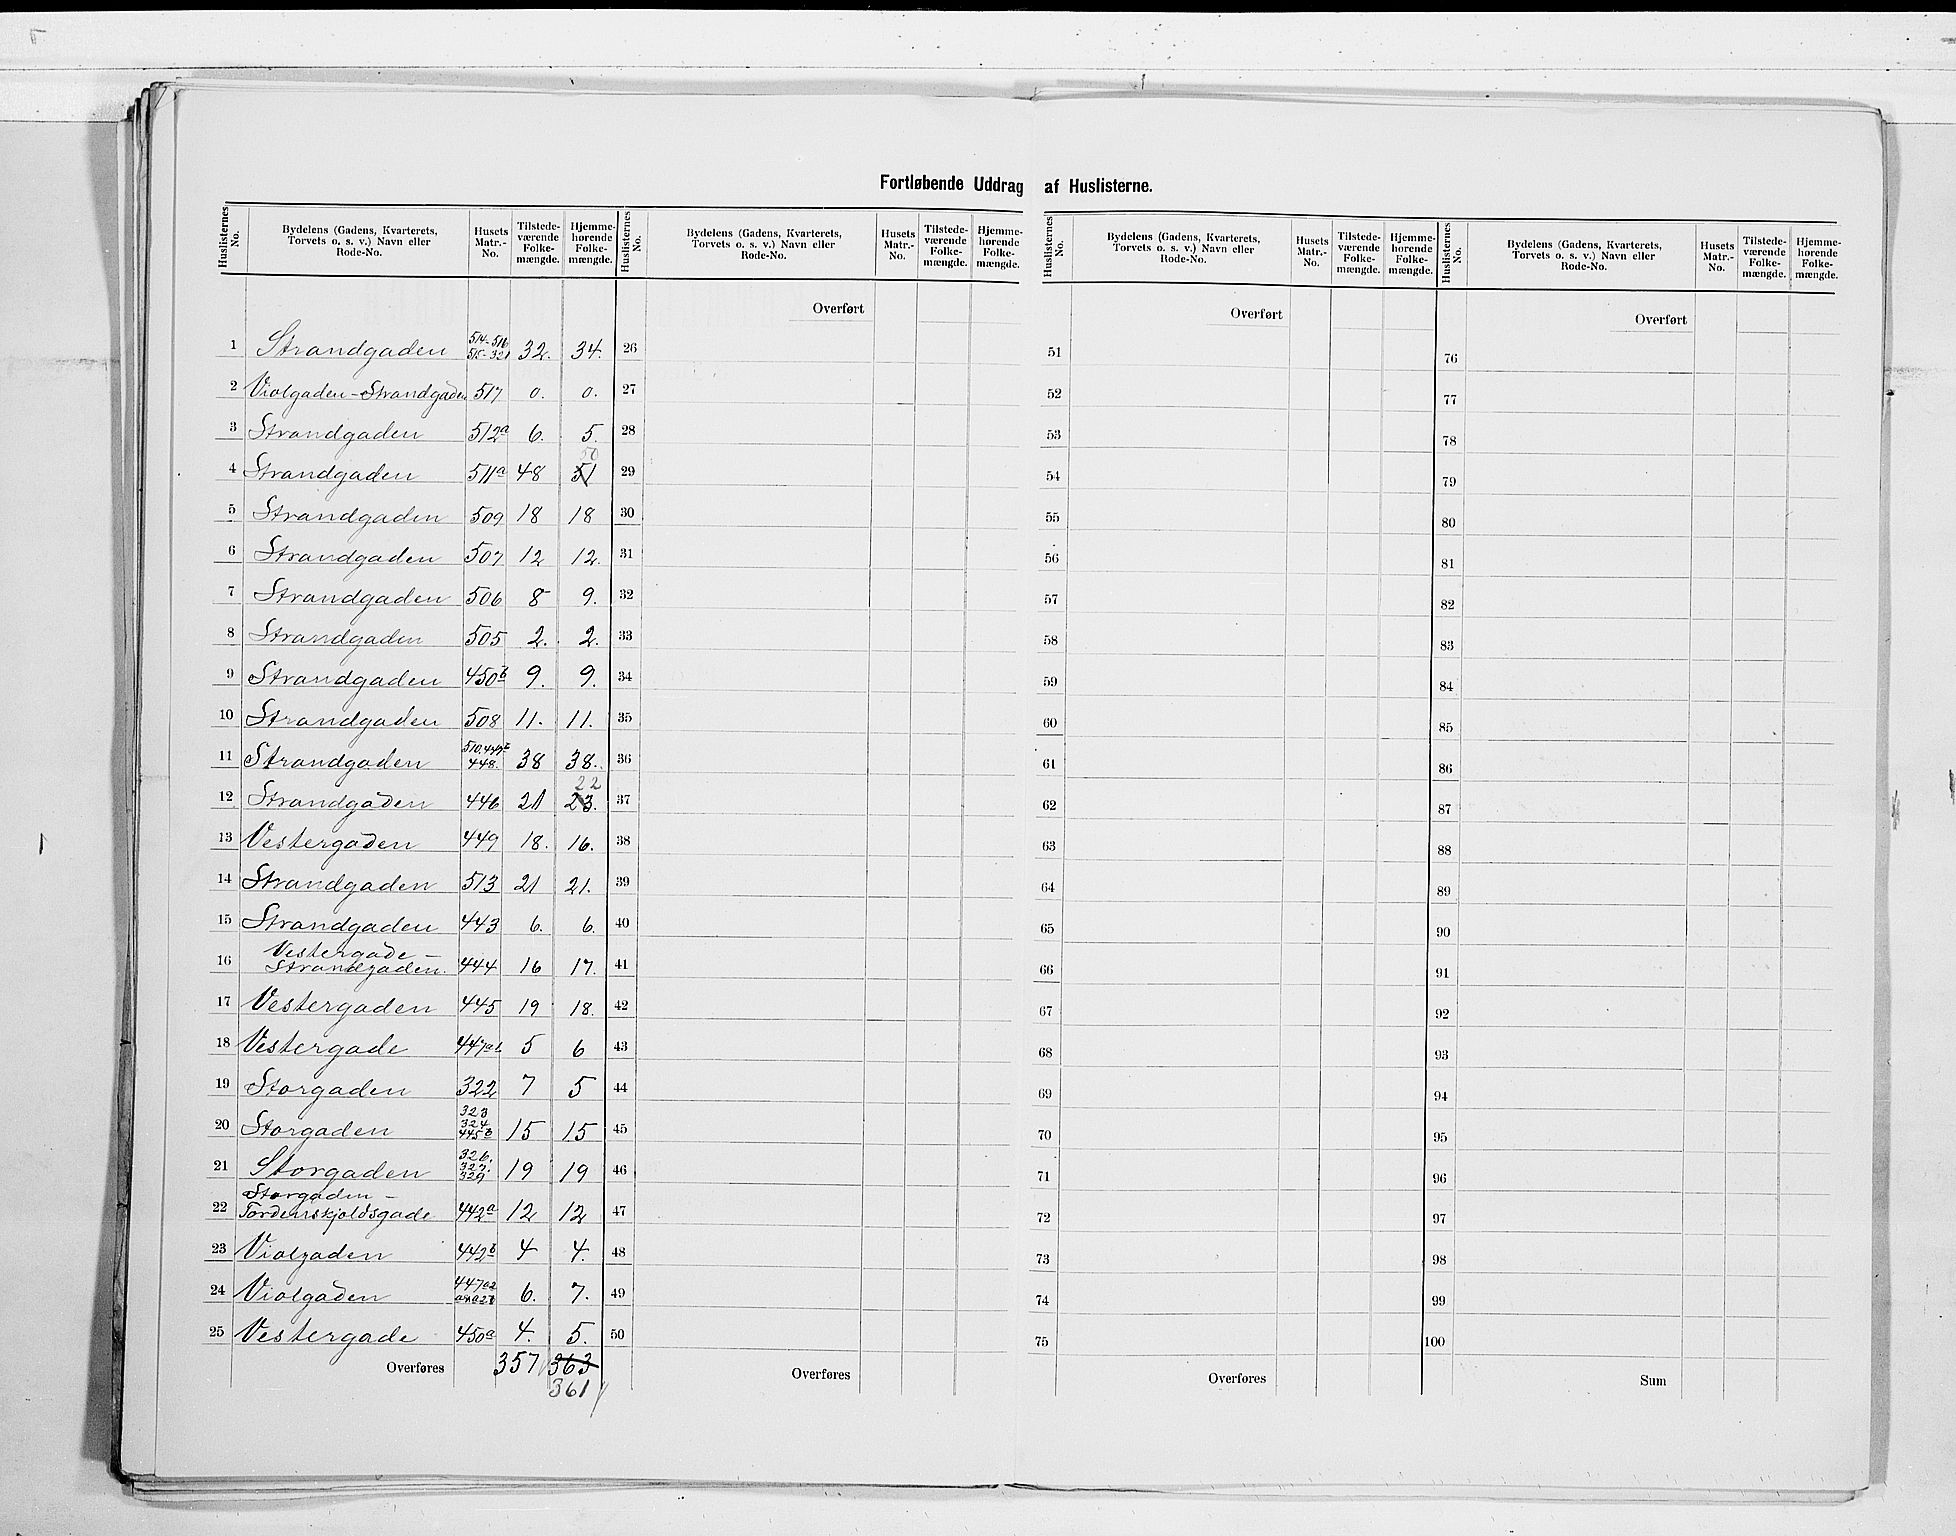 Fortløbende Uddrag af Huslisterne.
Huslisternes No. | Bydelens (Gadens, Kvarterets, Torvets o. s. v.) Navn eller Rode-No. | Husets Matr.-No. | Tilstede-værende Folke-mængde. | Hjemme-hørende Folke-mængde. | Huslisternes No. | Bydelens (Gadens, Kvarterets, Torvets o. s. v.) Navn eller Rode-No. | Husets Matr.-No. | Tilstede-værende Folke-mængde. | Hjemme-hørende Folke-mængde. | Huslisternes No. | Bydelens (Gadens, Kvarterets, Torvets o. s. v.) Navn eller Rode-No. | Husets Matr.-No. | Tilstede-værende Folke-mængde. | Hjemme-hørende Folke-mængde. | Huslisternes No. | Bydelens (Gadens, Kvarterets, Torvets o. s. v.) Navn eller Rode-No. | Husets Matr.-No. | Tilstede-værende Folke-mængde. | Hjemme-hørende Folke-mængde.
Overført Overført Overført
1 Strandgaden 514-516 515-321 32. 34. 26 51 76
2 Violgaden-Strandgaden 517 0. 0. 27 52 77
3 Strandgaden 512a 6. 5. 28 53 78
4 Strandgaden 511a 48 51 50 29 54 79
5 Strandgaden 509 18 18 30 55 80
6 Strandgaden 507 12 12. 31 56 81
7 Strandgaden 506 8 9. 32 57 82
8 Strandgaden 505 2. 2. 33 58 83
9 Strandgaden 450b 9. 9. 34 59 84
10 Strandgaden 508 11. 11. 35 60 85
11 Strandgaden 510. 448. 38 38. 36 61 86
12 Strandgaden 446 21 23. 22 37 62 87
13 Vestergaden 449 18. 16. 38 63 88
14 Strandgaden 513 21 21. 39 64 89
15 Strandgaden 443 6. 6. 40 65 90
16 Vestergade- Strandgaden. 444 16 17. 41 66 91
17 Vestergaden 445 19 18. 42 67 92
18 Vestergade 447a1 5 6 43 68 93
19 Storgaden 322 7 5 44 69 94
20 Storgaden 323 324 445b 15 15 45 70 95
21 Storgaden 326. 327. 329 19 19 46 71 96
22 Storgaden- Tordenskjoldsgade 442a 12 12 47 72 97
23 Violgaden 442b 4 4. 48 73 98
24 Violgaden 447a2 6. 7. 49 74 99
25 Vestergade 450a 4. 5. 50 75 100
Overføres 357 363 Overføres Overføres Sum
361